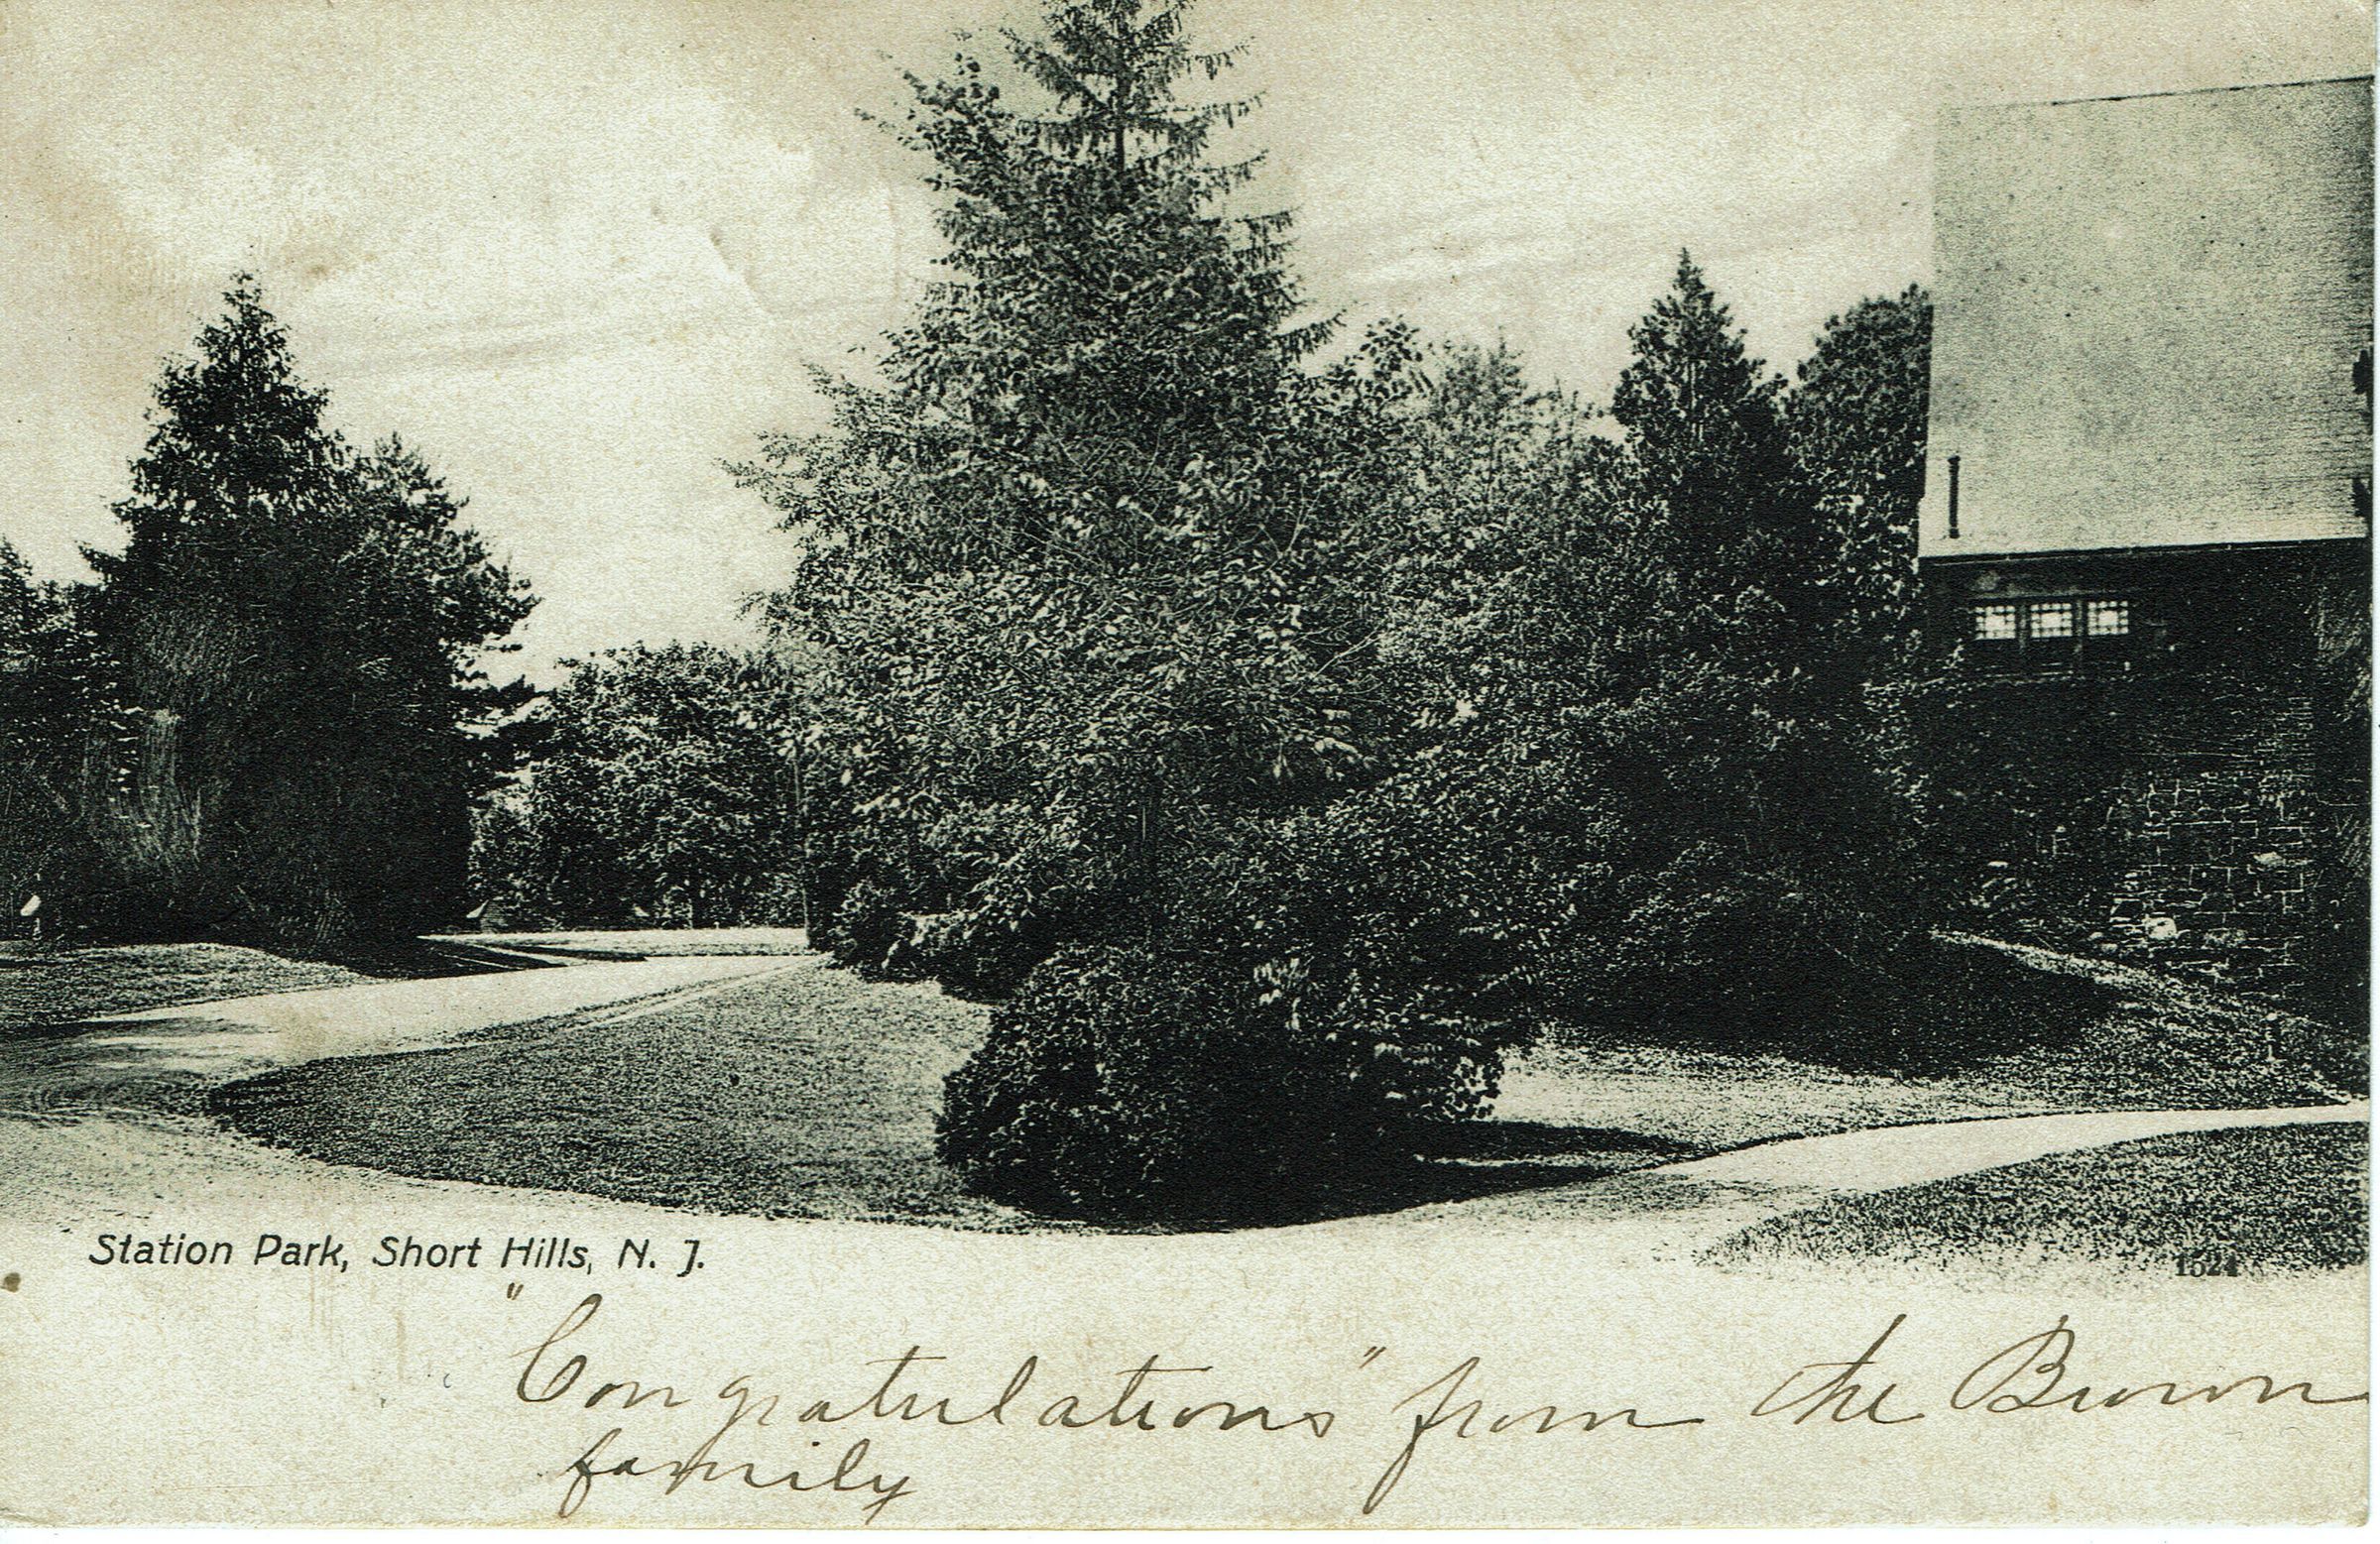 Station Park, Short Hills, N. J.
1524
"Congratulations" from the Brown
family